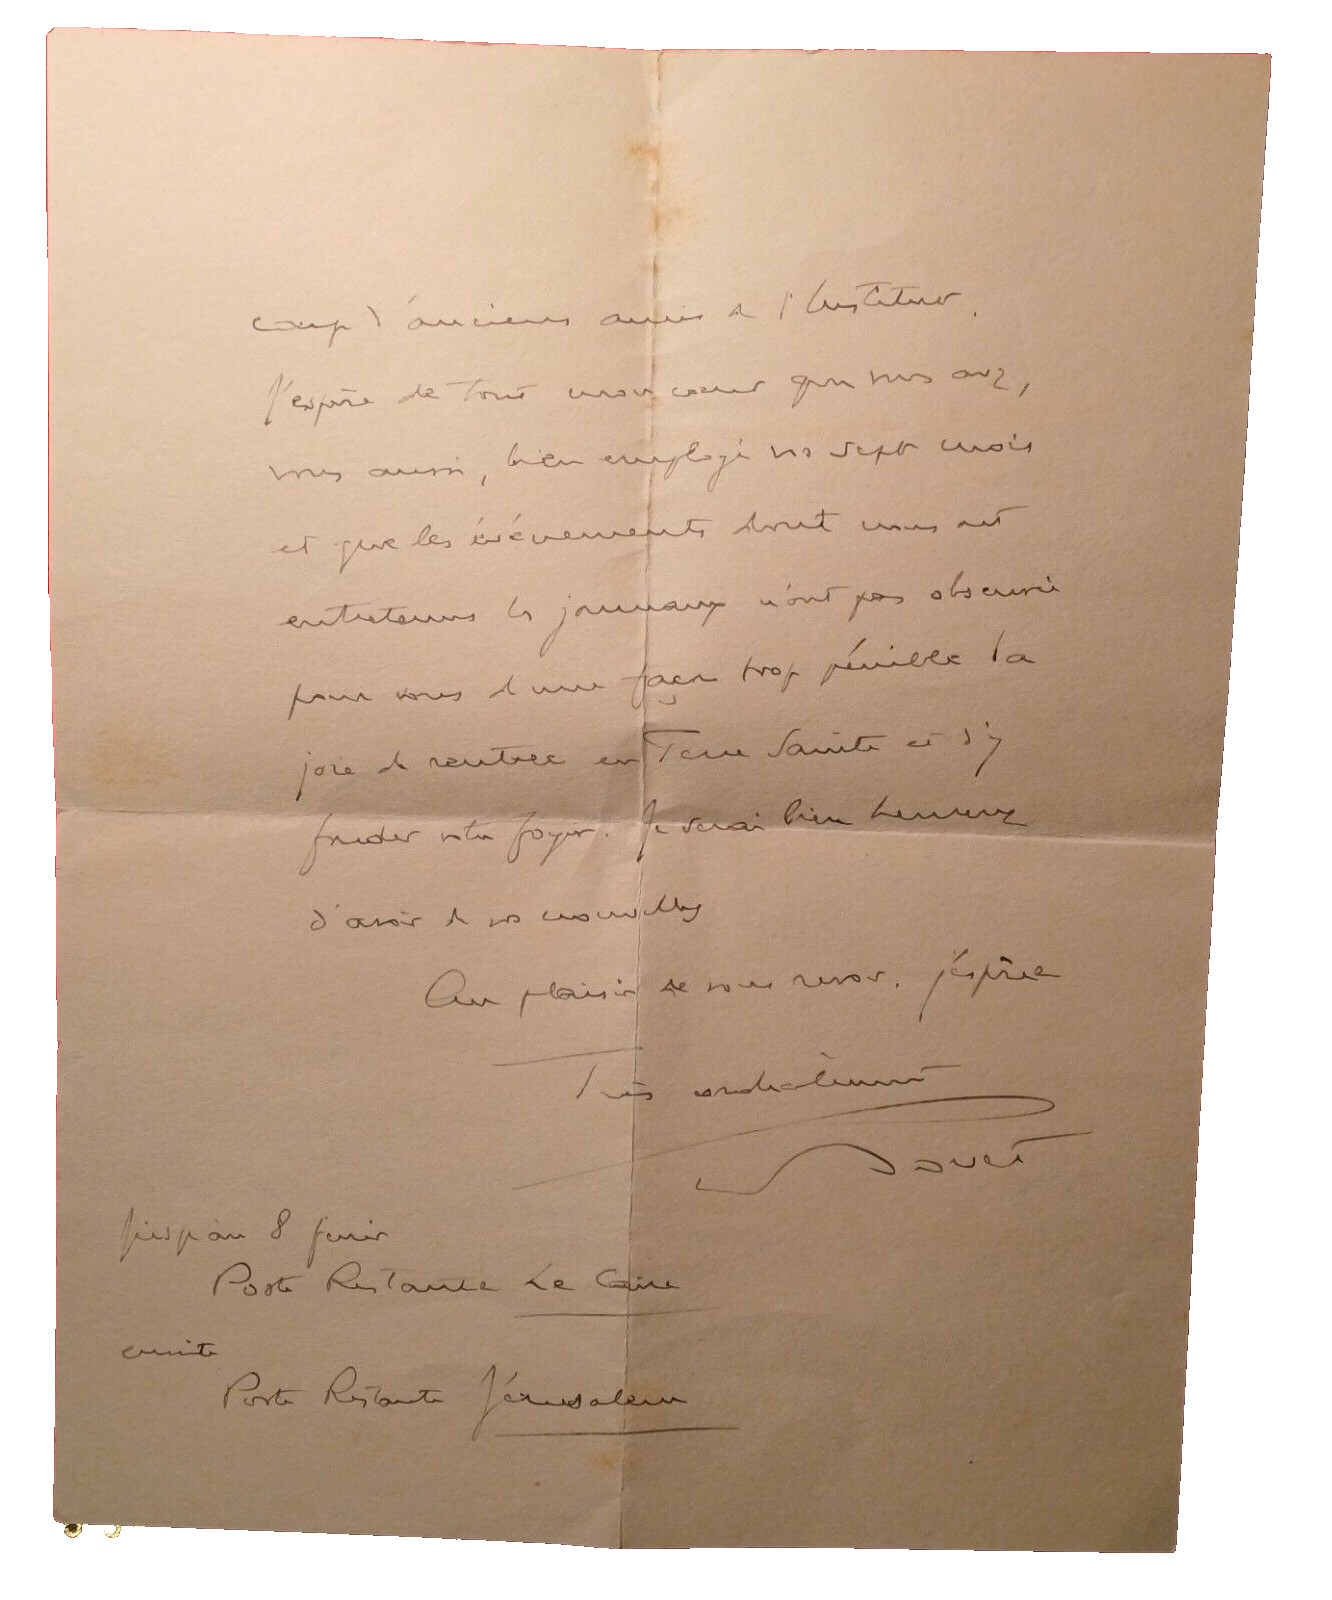 coup d'anciens amis de l'Institut.
J'espère de tout mon cœur que vous avez,
vous aussi, bien employé vos sept mois
et que les événements dont nous ont
entretenus les journaux n'ont pas obscurci
pour vous d'une façon trop pénible la
joie de rentrer en Terre Sainte et d'y
fonder votre foyer. Je serai bien heureux
d'avoir de vos nouvelles
Au plaisir de vous revoir, j'espère
Très cordialement
Jusqu'au 8 février
Poste Restante Le Caire
ensuite
Poste Restante Jérusalem